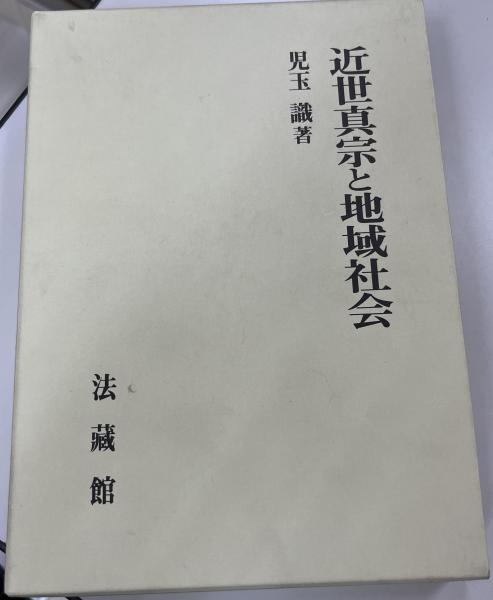 近世真宗と地域社会
児玉 識著
法藏館